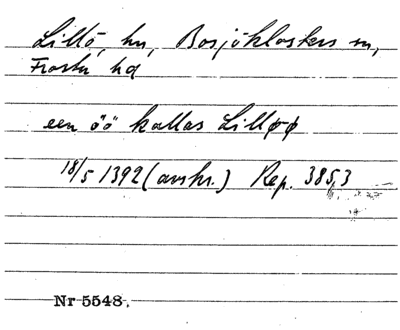 Lillö, hn, Bosjöklosters sn,
Frosta hd
een öö kallas Lilløø
18/5 1392 (avskr.) Rep. 385,3
Nr 5548.